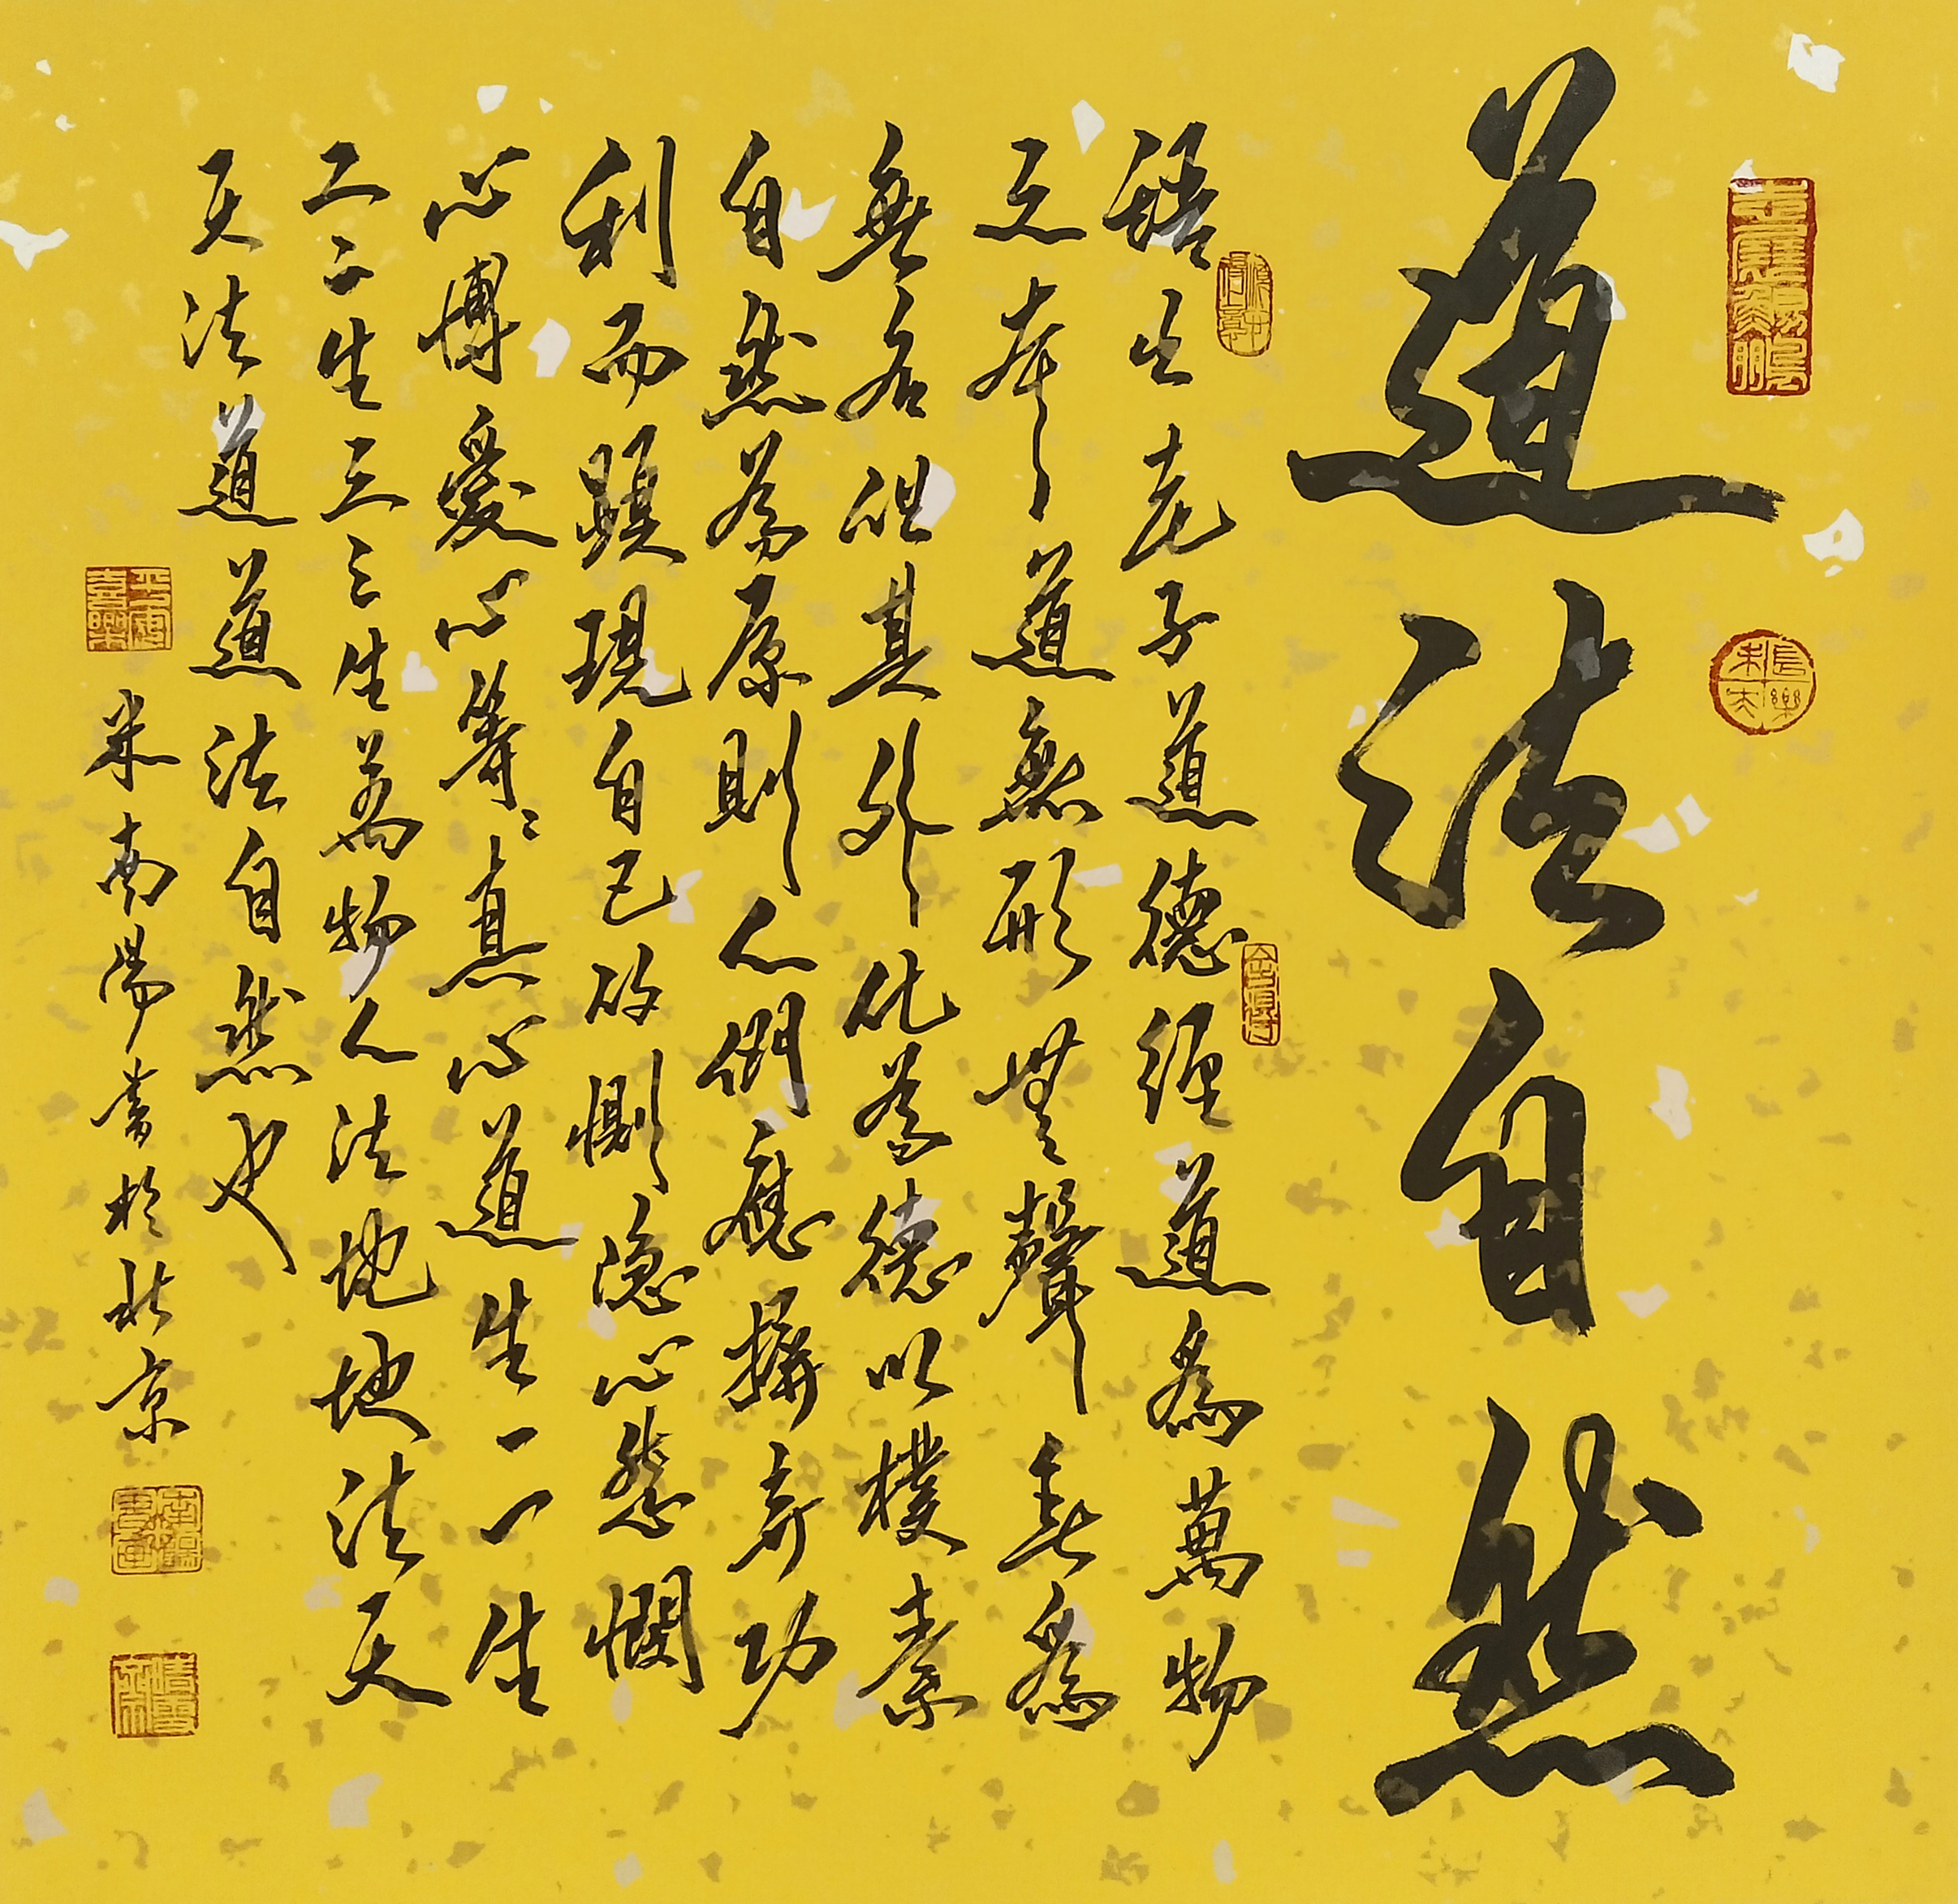 道法自然
語出老子道德經道為萬物
之本道無形無聲無為
無名但其外化為德以樸素
自然為原則人們應摒弃功
利而顯現自己的惻隐心慈憫
心博愛心等等真心道生一一生
二二生三三生萬物人法地地法天
天法道道法自然也
米南陽書於北京
長樂未央